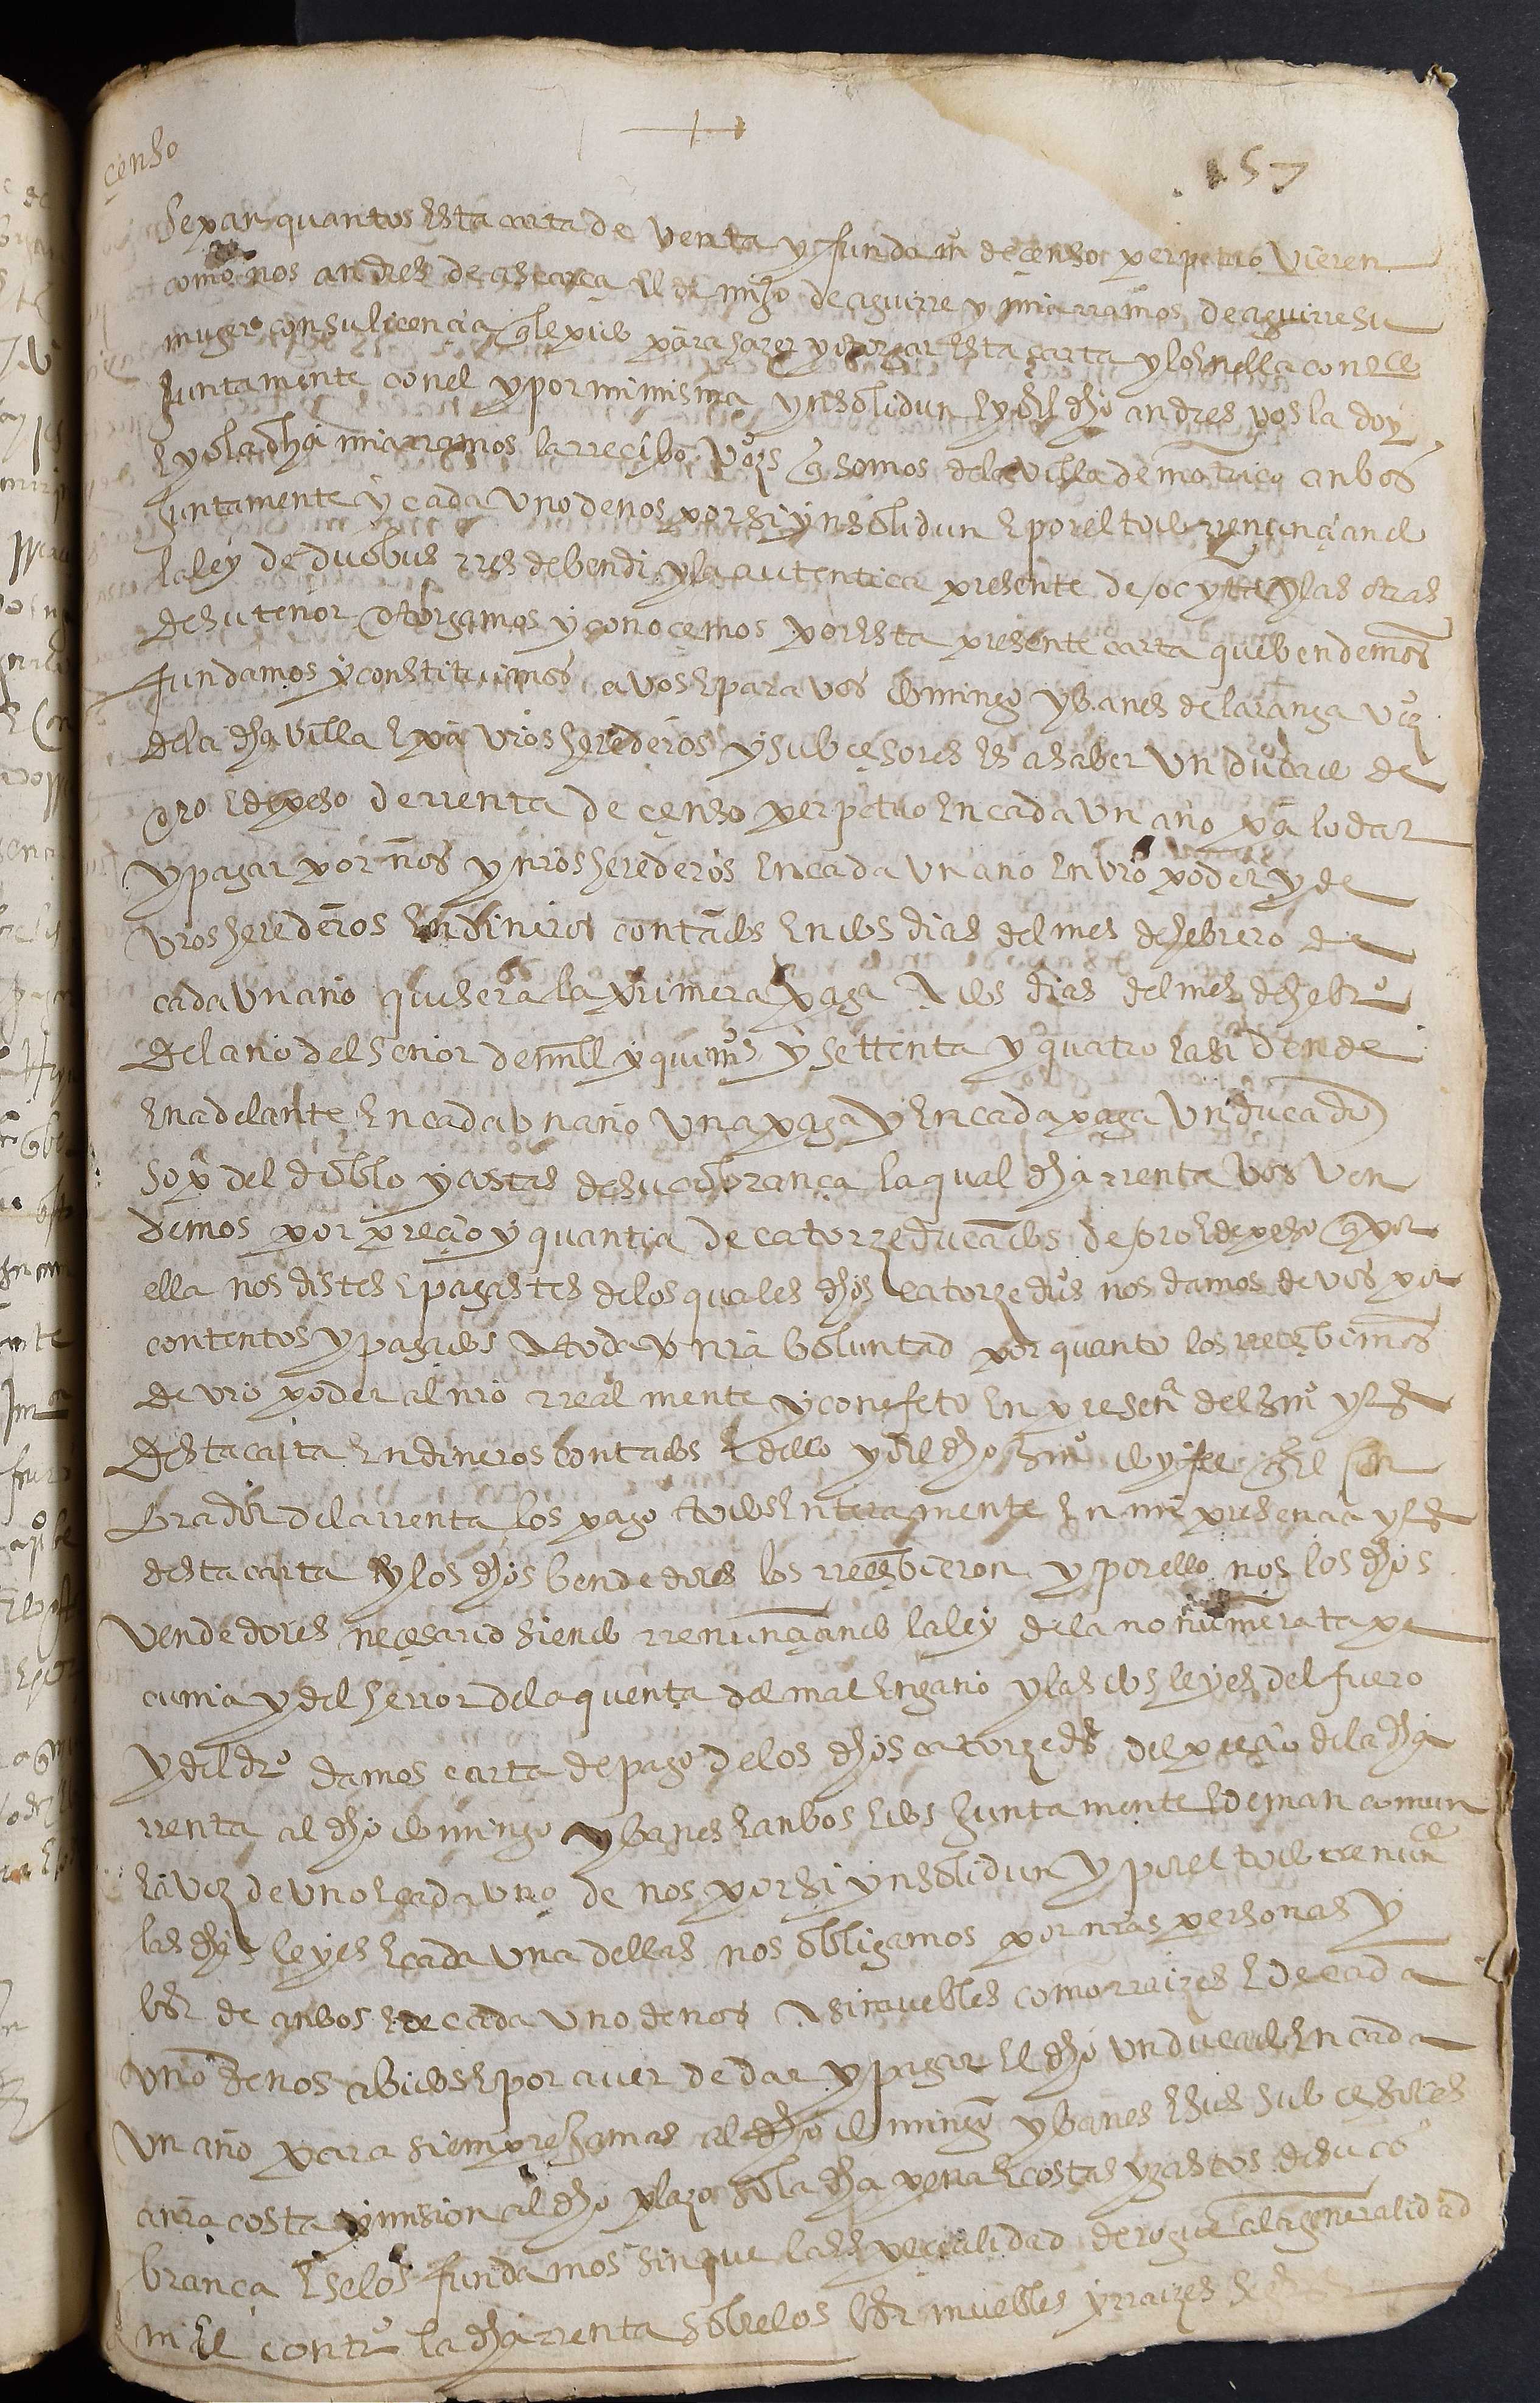 censo
157
Sepan quantos esta carta de venta y fundamo de censo perpetuo vieren
como nos andres de ascarça el de mijo de aguirre y mia rramos de aguirre su
muger con su licencia q le pido para hazer y otorgar esta carta y lo en ella conoce
juntamente con el y por mi misma ynsolidun e yo el dho andres vos la doy
e yo la dha mia rramos la rrecibo vos q somos de la villa de motrico anbos
juntamente y cada uno de nos por si ynsolidun e por el todo rrenunçiando
la ley de duobus rres debendi y la autentica presente de oc yta y las otras
de su tenor otorgamos y conoçemos por esta presente carta que bendemos
fundamos y constituimos a vos e para vos domingo ybanes de laranga vo
de la dha villa e pa vros herederos y subcesores es a saber un ducado de
oro e de peso de rrenta de censo perpetuo en cada un año pa lo dar
y pagar por nos y nros herederos en cada un año en vro poder y de
vros herederos en dineros contados en dos dias del mes de hebrero de
cada un año que sera la primera paga a dos dias del mes de hebro
del año del señor de mill y quios y settenta y quatro e asi dende
en adelante en cada un año una paga y en cada paga un ducado
so pa del doblo y costas de su cobrança la qual dha rrenta vos ven
demos por preçio y quantia de catorze ducados de oro e de peso q por
ella nos distes e pagastes de los quales dhos catorze dus nos damos de vos por
contentos y pagados a toda nra boluntad por quanto los rreçebimos
de vro poder al nro rrealmente y con efeto en presena del sno y ts
desta carta en dineros contados e dello yo el dho sno doy fee q el con
prador de la rrenta los pago todos enteramente en mi presencia y ts
desta carta y los dhos bendedores los rreçebieron y por ello nos los dhos
vendedores neçesario siendo rrenunçiando la ley de la no numerata pe
cunia y del herror de la quenta del mal engaño y las dos leyes del fuero
y del dro damos carta de pago de los dhos catorze ds del preçio de la dha
rrenta al dho domingo ybanes e anbos e dos juntamente e de man comun
e a voz de uno e cada uno de nos por si ynsolidun y por el todo rrenundo
las dhas leyes e cada una dellas nos obligamos por nras personas y
bs de anbos e de cada uno de nos asi muebles como rraizes e de cada
uno de nos abidos e por aver de dar y pagar el dho un ducado en cada
un año para sienpre jamas al dho domingo ybanes e sus subcesores
a nra costa y mision al dho plazo so la dha pena e costas y gastos de su co
brança e se los fundamos sin que la espeçialidad derogue a la generalidad
ni el contro la dha rrenta sobre los bs muebles y rraizes